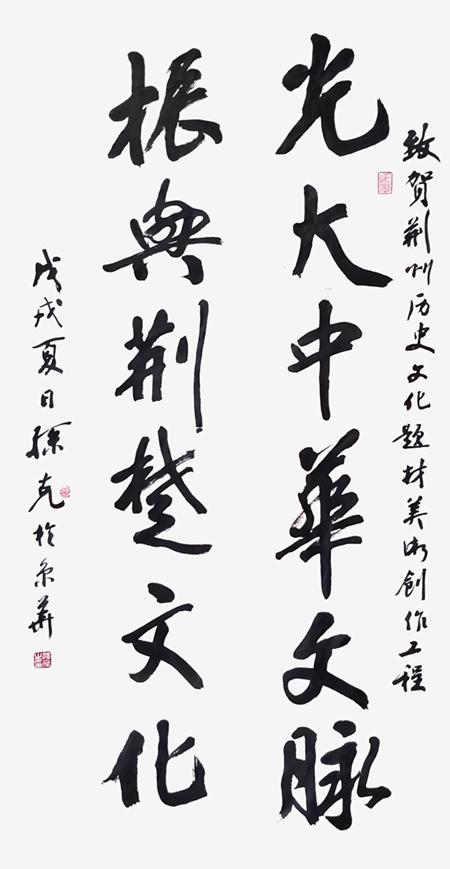 致贺荆州历史文化题材美术創作工程
光大中華文脉
振興荆楚文化
戊戌夏日孫克於京華